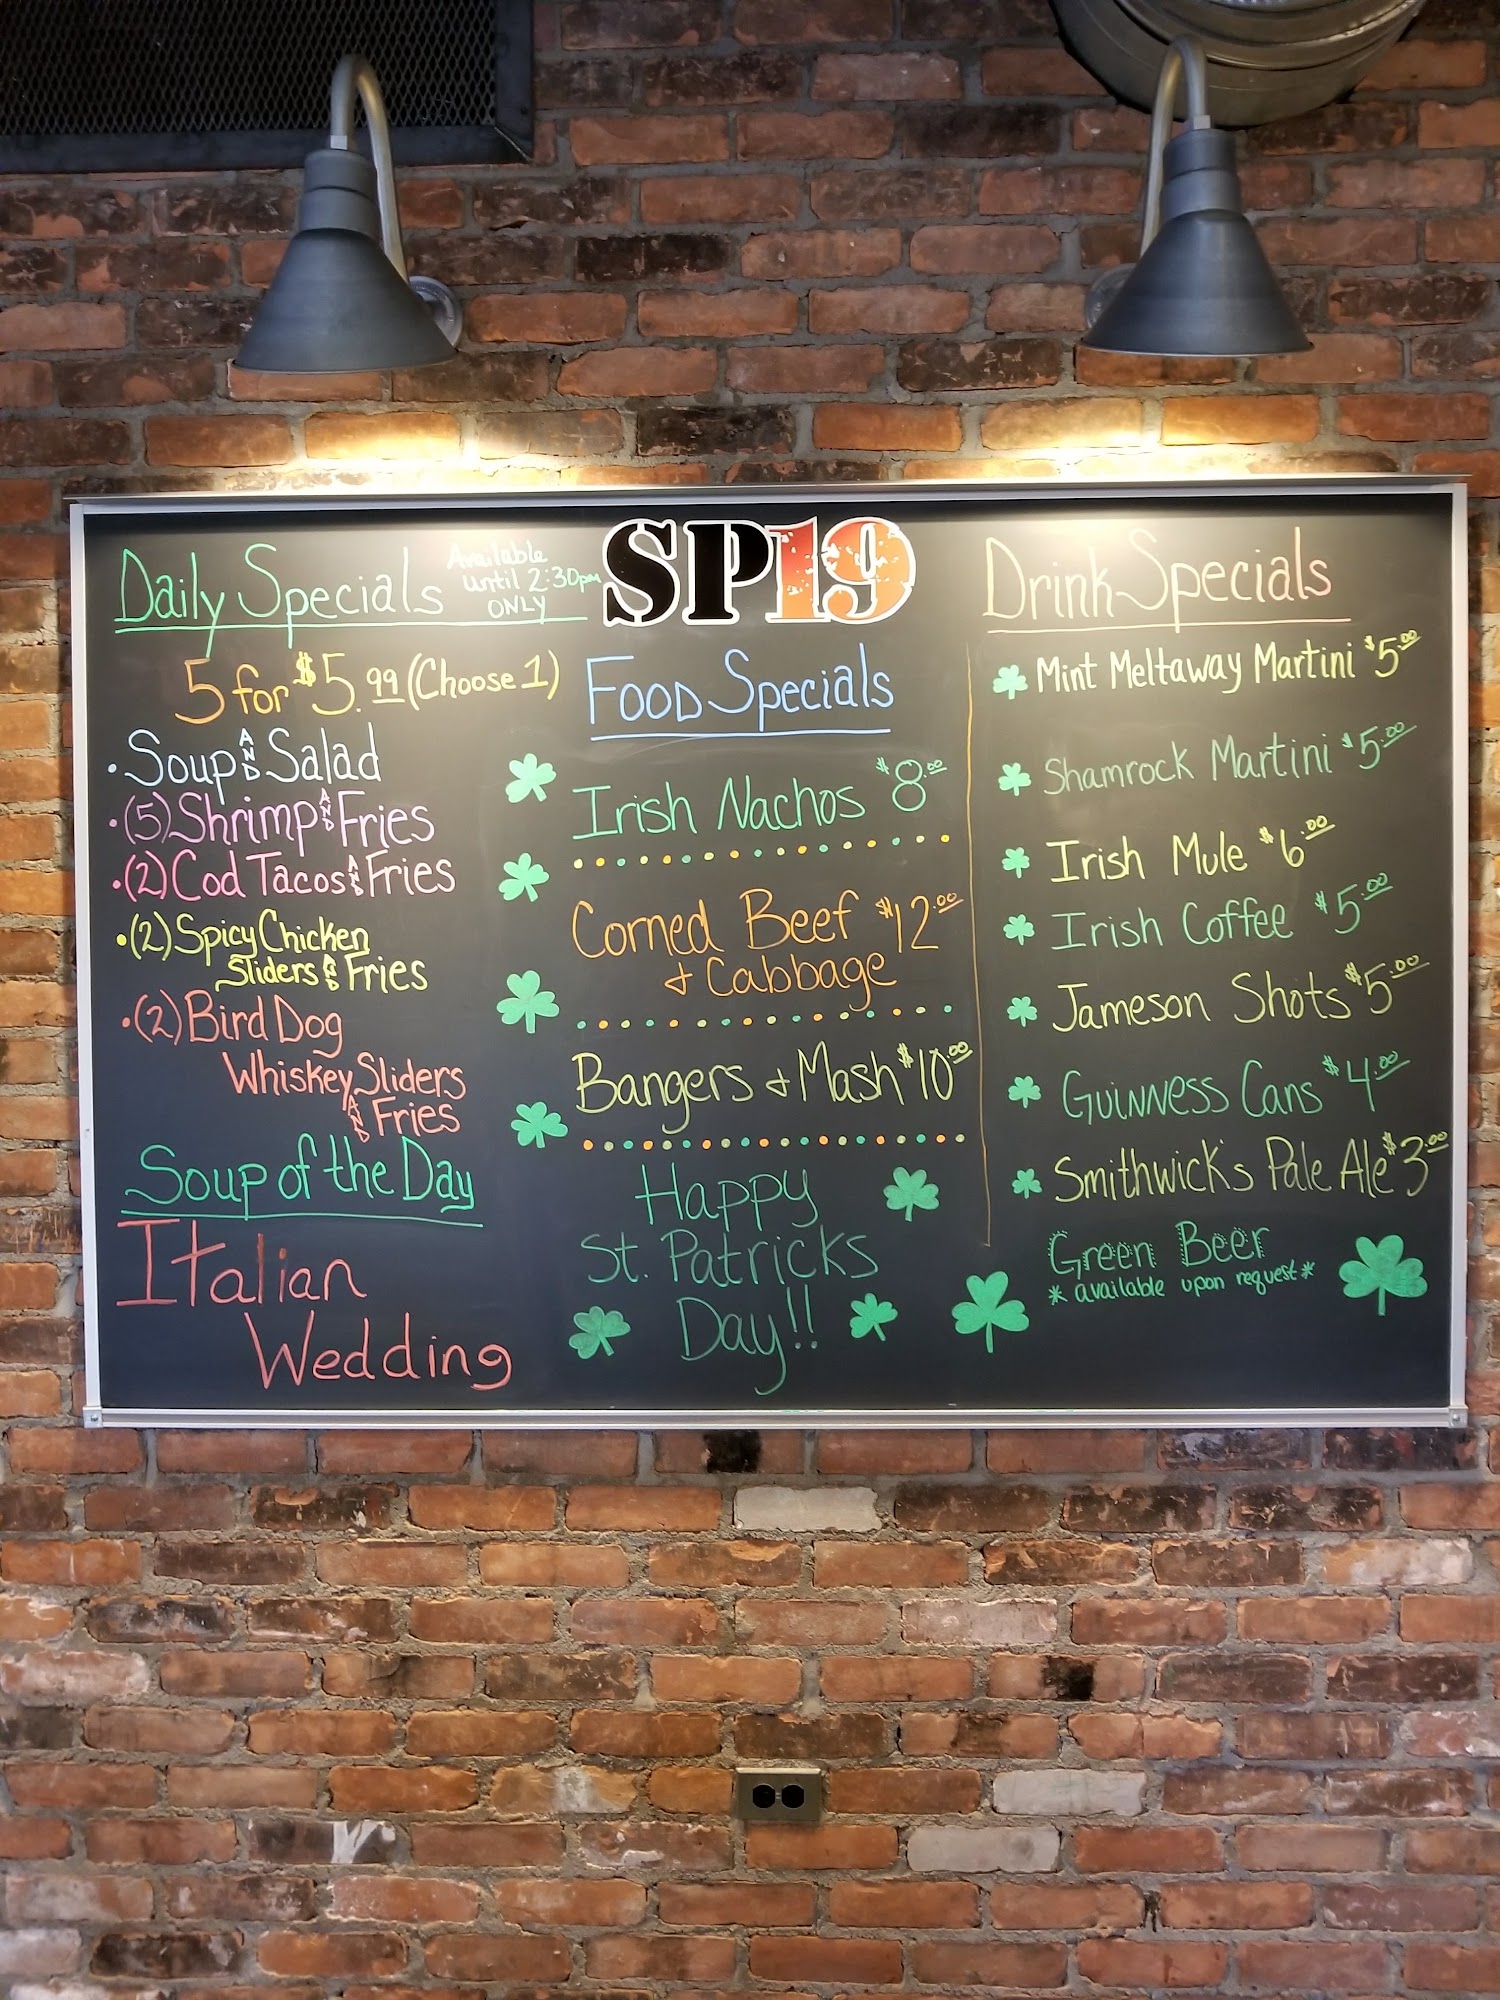 SP19
Daily Specials
Available
until 2:30pm
ONLY
5 for $5.99 (Choose 1)
• Soup AND Salad
• (5) Shrimp AND Fries
• (2) Cod Tacos AND Fries
• (2) Spicy Chicken
Sliders AND Fries
• (2) Bird Dog
Whiskey Sliders
AND Fries
Soup of the Day
Italian
Wedding
Food Specials
Irish Nachos $8.00
Corned Beef $12.00
& Cabbage
Bangers & Mash $10.00
Happy
St. Patricks
Day!!
Drink Specials
Mint Meltaway Martini $5.00
Shamrock Martini $5.00
Irish Mule $6.00
Irish Coffee $5.00
Jameson Shots $5.00
Guinness Cans $4.00
Smithwick's Pale Ale $3.00
Green Beer
* available upon request *